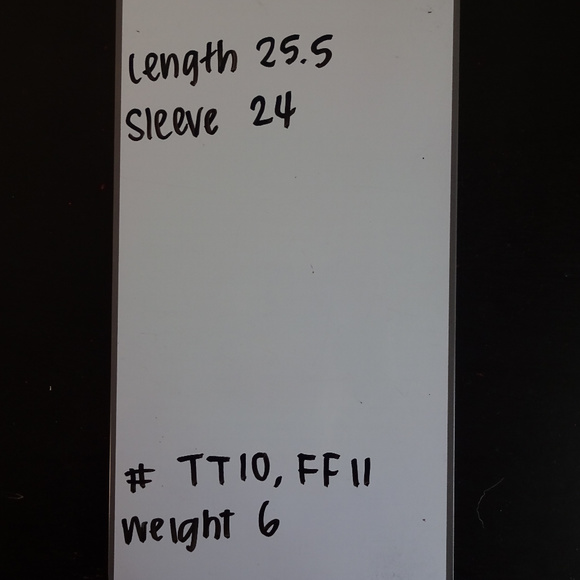 Length 25.5
Sleeve 24
# TT10, FF11
Weight 6